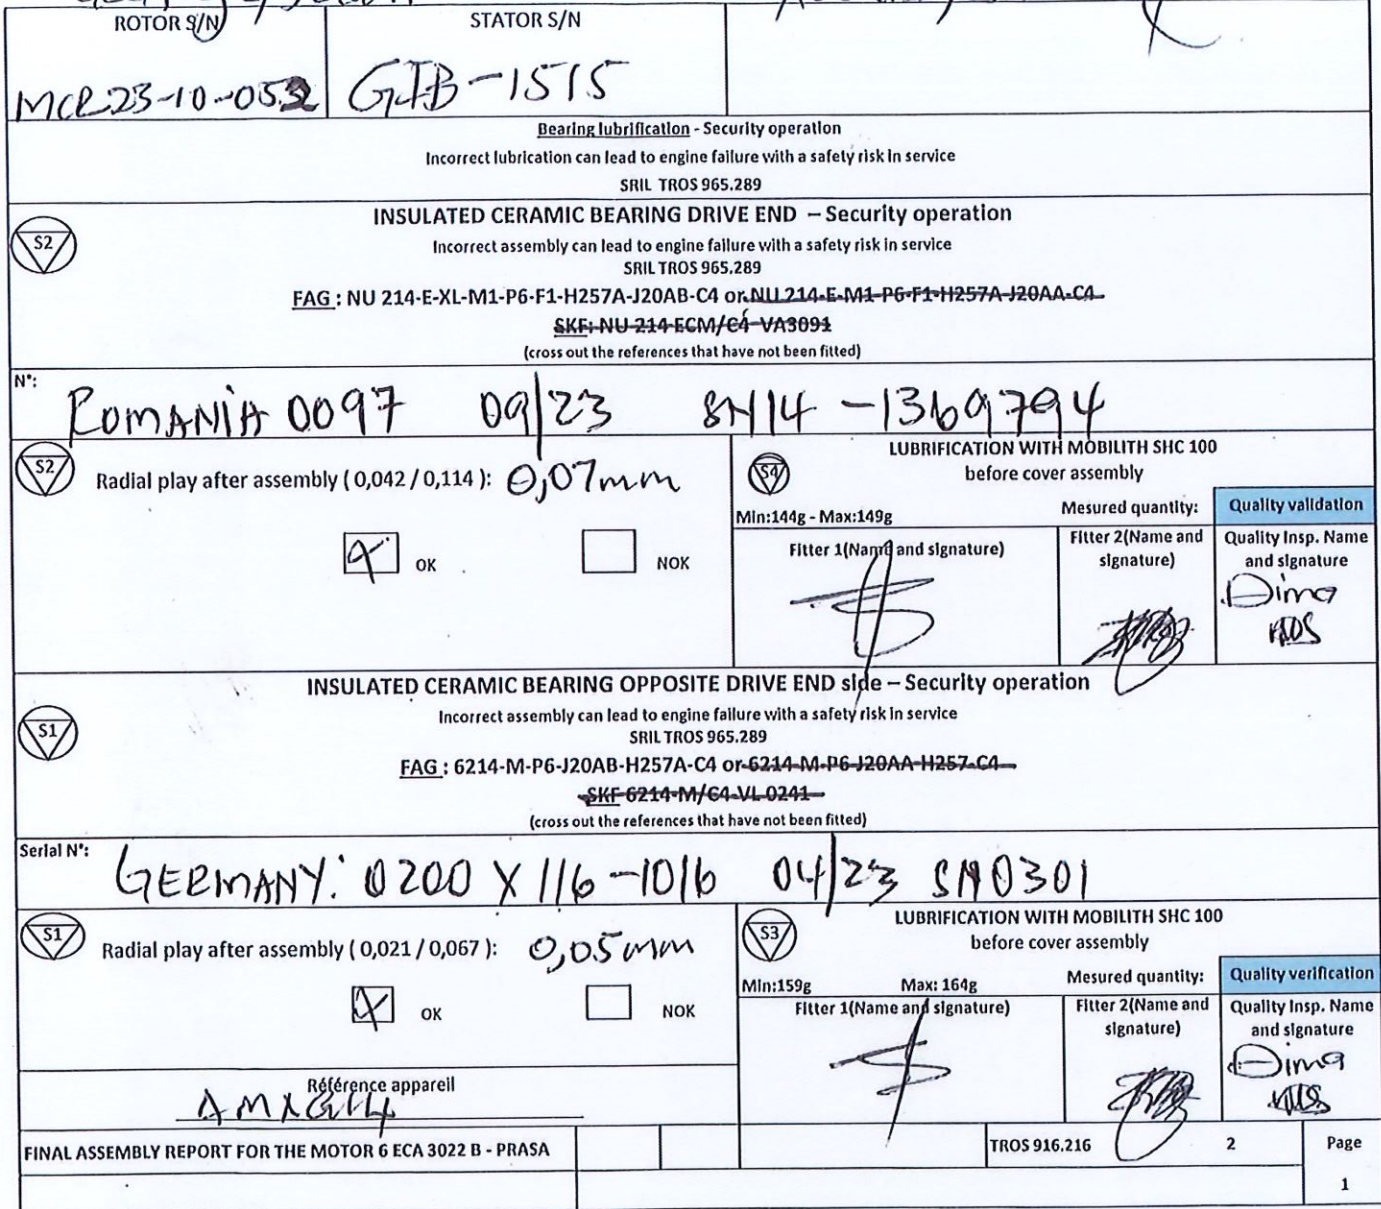 ROTOR S/N
STATOR S/N
MCR23-10-052
GIB-1515
Bearing lubrification - Security operation
Incorrect lubrication can lead to engine failure with a safety risk in service
SRIL TROS 965.289
S2
INSULATED CERAMIC BEARING DRIVE END – Security operation
Incorrect assembly can lead to engine failure with a safety risk in service
SRIL TROS 965.289
FAG : NU 214-E-XL-M1-P6-F1-H257A-J20AB-C4 or NU 214-E-M1-P6-F1-H257A-J20AA-C4
SKF: NU 214 ECM/C4 VA3091
(cross out the references that have not been fitted)
N°:
ROMANIA 0097 09/23 SN14 -1369794
S2
Radial play after assembly ( 0,042 / 0,114 ): 0,07mm
OK
NOK
S4
LUBRIFICATION WITH MOBILITH SHC 100
before cover assembly
Min:144g - Max:149g
Mesured quantity:
Quality validation
Fitter 1(Name and signature)
Fitter 2(Name and signature)
Quality Insp. Name and signature
Dima
INSULATED CERAMIC BEARING OPPOSITE DRIVE END side – Security operation
S1
Incorrect assembly can lead to engine failure with a safety risk in service
SRIL TROS 965.289
FAG : 6214-M-P6-J20AB-H257A-C4 or 6214-M-P6-J20AA-H257-C4
SKF 6214-M/C4-VL 0241
(cross out the references that have not been fitted)
Serial N°:
GERMANY: 0200 X 116-1016 04/23 SN0301
S1
Radial play after assembly ( 0,021 / 0,067 ): 0,05mm
OK
NOK
S3
LUBRIFICATION WITH MOBILITH SHC 100
before cover assembly
Min:159g Max: 164g
Mesured quantity:
Quality verification
Fitter 1(Name and signature)
Fitter 2(Name and signature)
Quality Insp. Name and signature
Dima
Référence appareil
FINAL ASSEMBLY REPORT FOR THE MOTOR 6 ECA 3022 B - PRASA
TROS 916.216
2
Page
1